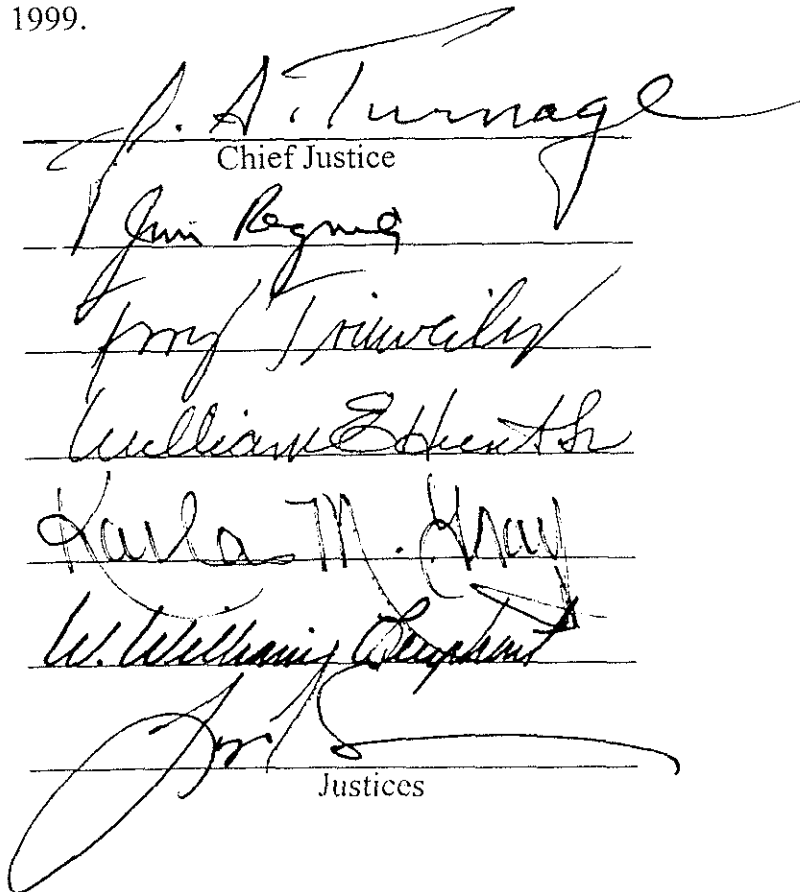 1999.
J. A. Turnage
Chief Justice
Jim Regnier
Terry Trieweiler
William E Hunt Sr
Karla M. Gray
W. William Leaphart
Justices